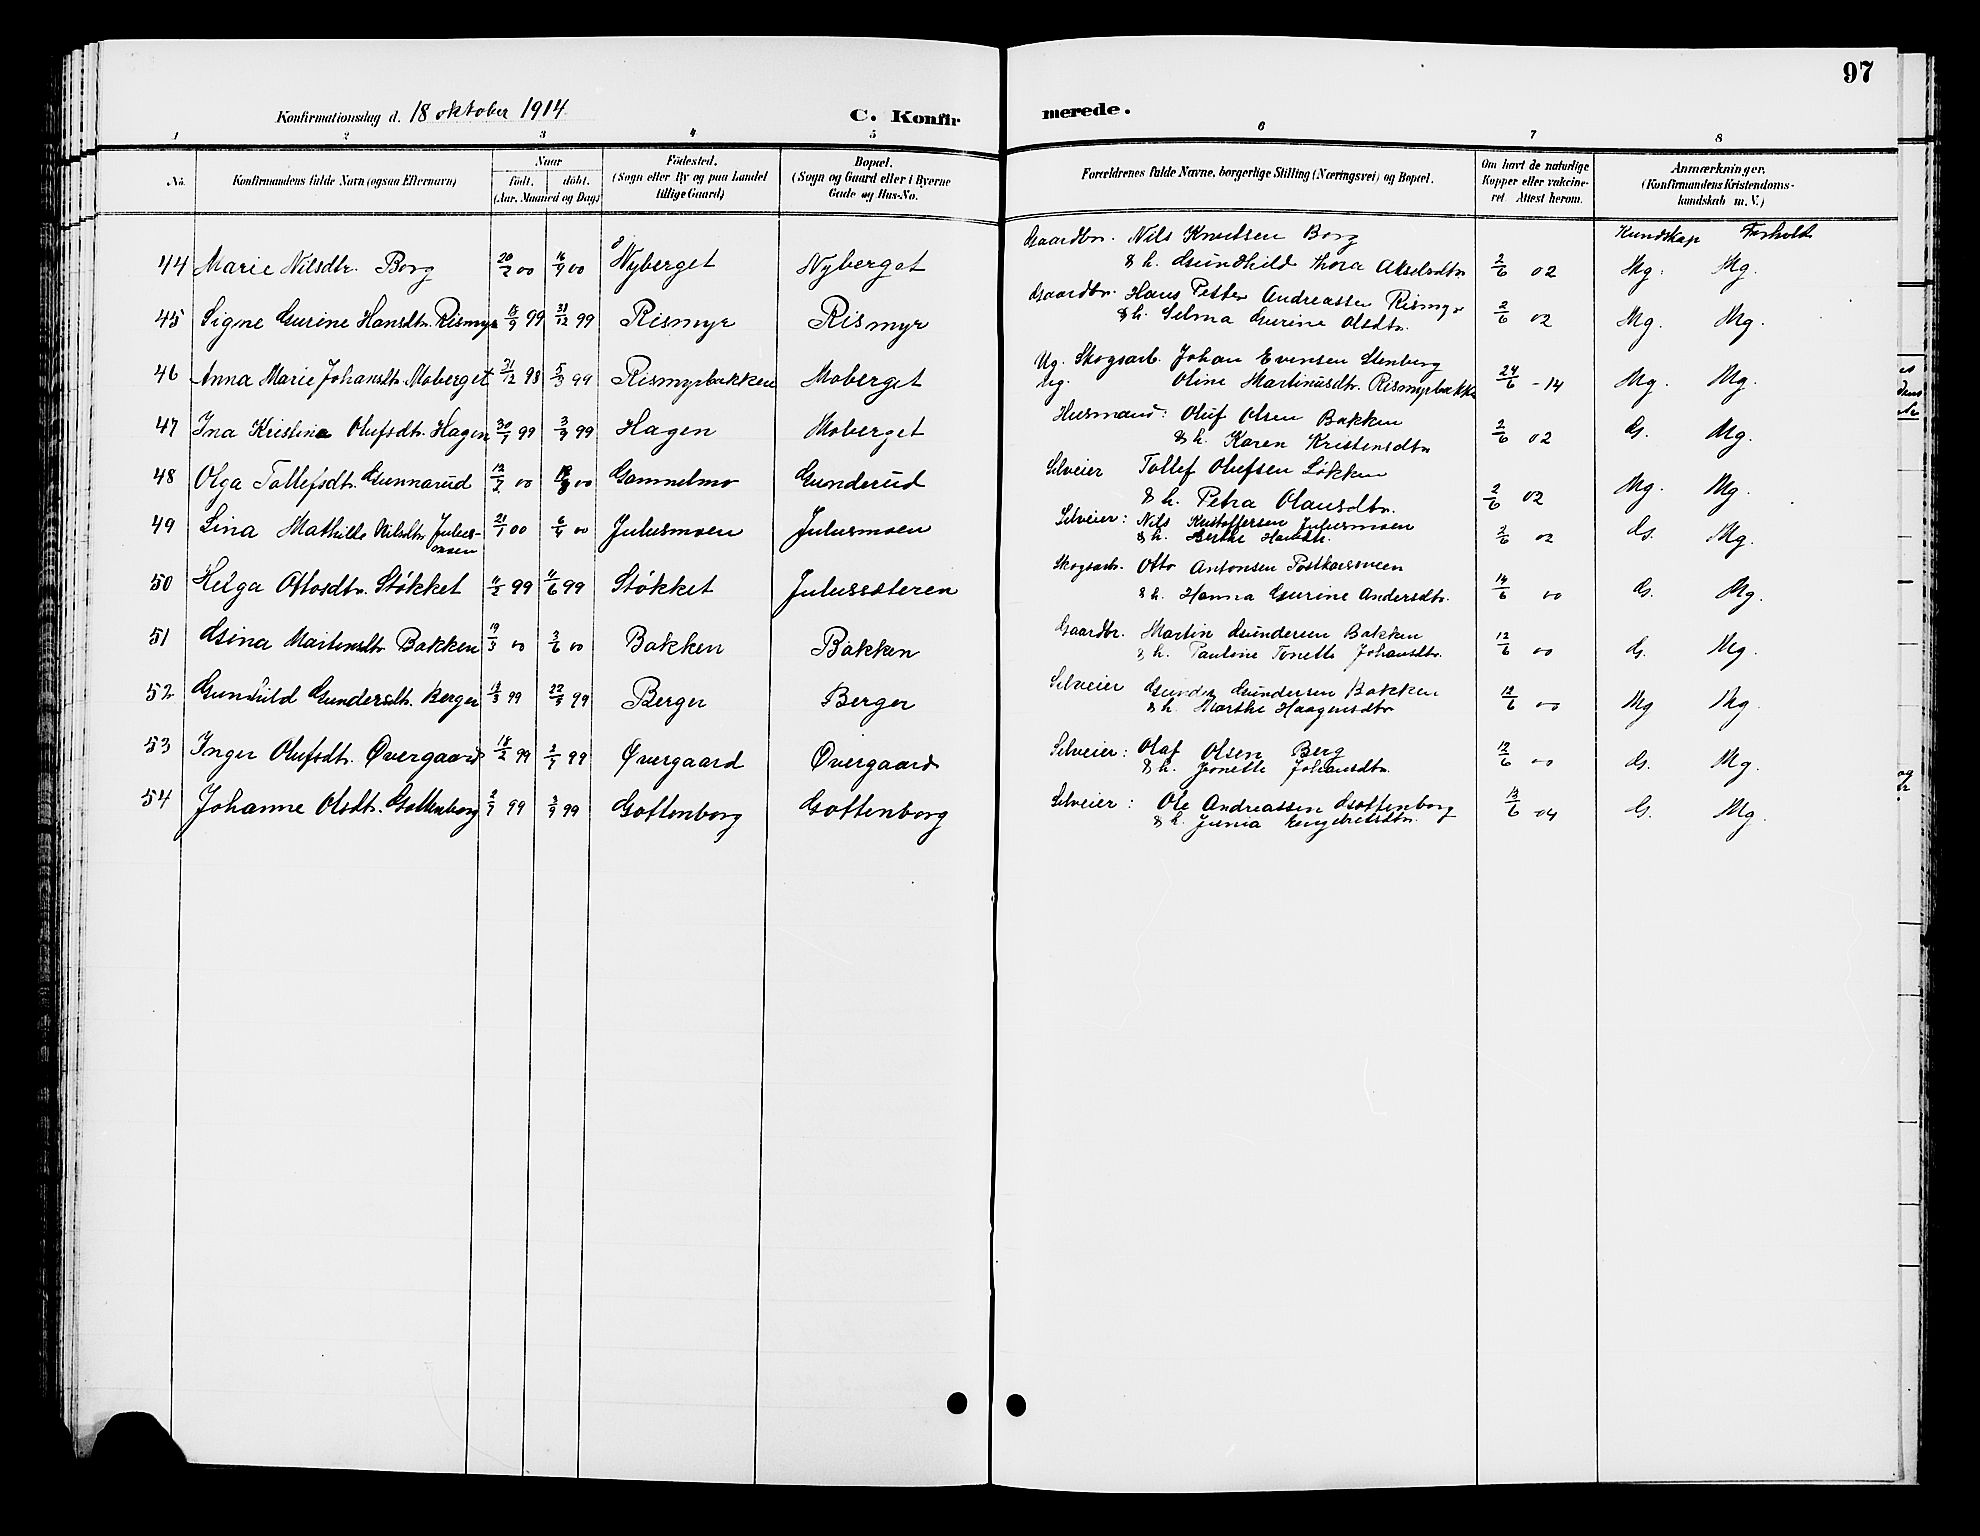 97
Konfirmationsdag d. 18 oktober 1914
C. Konfirmerede.
1 2 3 4 5 6 7 8
No. Konfirmandens fulde Navn (ogsaa Efternavn) Naar født. døbt. (Aar, Maaned og Dag) Födested. (Sogn eller By og paa Landet tillige Gaard) Bopæl. (Sogn og Gaard eller i Byerne Gade og Hus-No. Forældrenes fulde Navne, borgerlige Stilling (Næringsvei) og Bopæl. Om havt de naturlige Kopper eller vakcineret. Attest herom. Anmærkninger. (Konfirmandens Kristendomskundskab m. V.)
Kundskap Forhold
44 Marie Nilsdtr. Borg 20/2 00 16/4 00 Nyberget Nyberget Gaardbr. Nils Knudsen Borg
& h. Gundhild Thora Akselsdtr. 2/6 02 Mg. Mg.
45 Signe Gurine Hansdtr. Rismyr 18/9 99 31/12 99 Rismyr Rismyr Gaardbr. Hans Petter Andreassen Rismyr
& h. Selma Gurine Olsdtr. 2/6 02 Mg. Mg.
46 Anna Marie Johansdtr. Moberget 31/12 98 5/3 99 Rismyrbakken Moberget Ug. Skogsarb. Johan Evensen Stenberg
Ug. Oline Martinusdtr. Rismyrbakk 24/6 - 14 Mg. Mg.
47 Ina Kristine Olufsdtr. Hagen 30/7 99 3/9 99 Hagen Moberget Husmand: Oluf Olsen Bakken
& h. Karen Kristensdtr 2/6 02 G. Mg.
48 Olga Tollefsdtr. Gunnarud 00 00 Gammelmo Gunderud Selveier Tollef Olufsen Løkken
& h. Petra Olausdtr. 2/6 02 Mg. Mg.
49 Lina Mathilde Nilsdtr. Julusmoen 21/1 00 6/4 00 Julusmoen Julusmoen Selveier: Nils Kristoffersen Julusmoen
& h. Berthe Hansdtr. 2/6 02 G. Mg.
50 Helga Ottosdtr. Støkket 4/2 99 11/6 99 Støkket Julussæteren Skogsarb. Otto Antonsen
& h. Hanna Gurine Andersdtr. 14/6 00 G. Mg.
51 Gina Martinsdtr Bakken 19/3 00 3/6 00 Bakken Bakken Gaardbr. Martin Gundersen Bakken
& h. Pauline Tonette Johansdtr. 12/6 00 G. Mg.
52 Gunhild Gundersdtr. Berger 18/3 99 22/5 99 Berger Berger Selveier Gunder Gundersen Bakken
& h. Marthe Haagensdtr 12/6 00 Mg Mg.
53 Inger Olufsdtr. Øvergaard 18/2 99 2/4 99 Øvergaard Øvergaard Selveier: Olaf Olsen Berg
& h. Jonette Johansdtr. 12/6 00 G. Mg.
54 Johanne Olsdtr. Gottenborg 2/7 99 3/9 99 Gottenborg Gottenborg Selveier: Ole Andreassen Gottenborg
& h. Junia Engebretsdtr. 13/6 04 G. Mg.